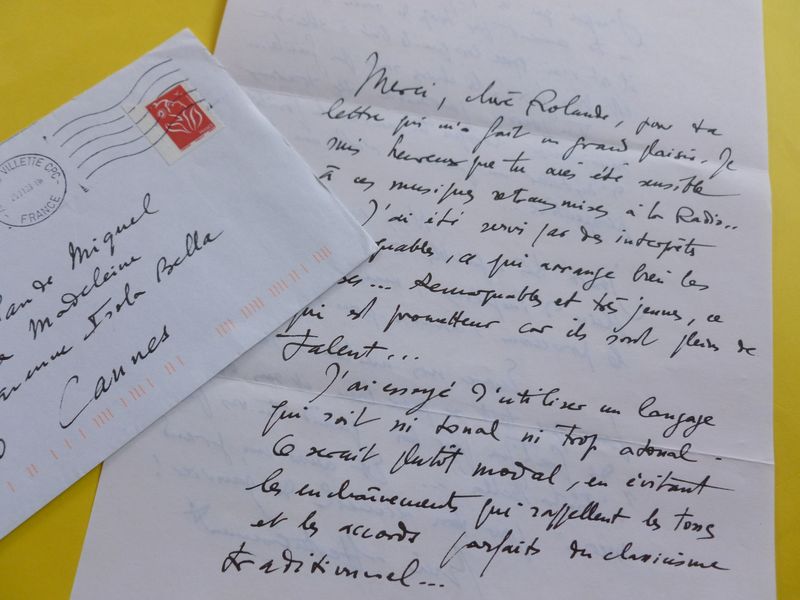 VILLETTE CPC
FRANCE
de Miquel
Madeleine
Isola Bella
Cannes
Merci, chère Rolande, pour ta
lettre qui m'a fait un grand plaisir. Je
suis heureux que tu aies été sensible
à ces musiques retransmises à la Radio..
J'ai été servi par des interprètes
quables, ce qui arrange bien les
ses... Remarquables et très jeunes, ce
qui est prometteur car ils sont pleins de
talent...
J'ai essayé d'utiliser un langage
qui soit ni tonal ni trop atonal.
Ce serait plutôt modal, en évitant
les enchaînements qui rappellent les tons
et les accords parfaits du classicisme
traditionnel...